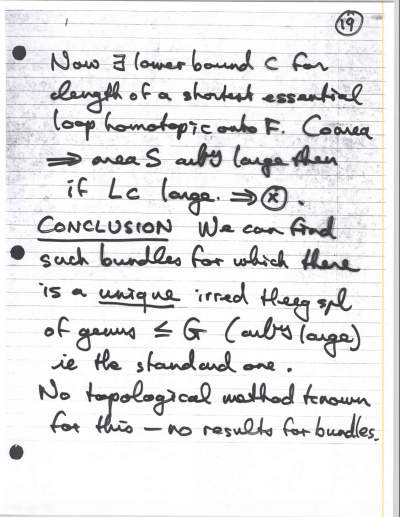 19
Now ∃ lower bound C for
length of a shortest essential
loop homotopic onto F. Coarea
⇒ area S arbʸ large then
if Lc large. ⇒ ⊗.
CONCLUSION We can find
such bundles for which there
is a unique irred Heeg spl
of genus ≤ G (arbʸ large)
ie the standard one.
No topological method known
for this – no results for bundles.